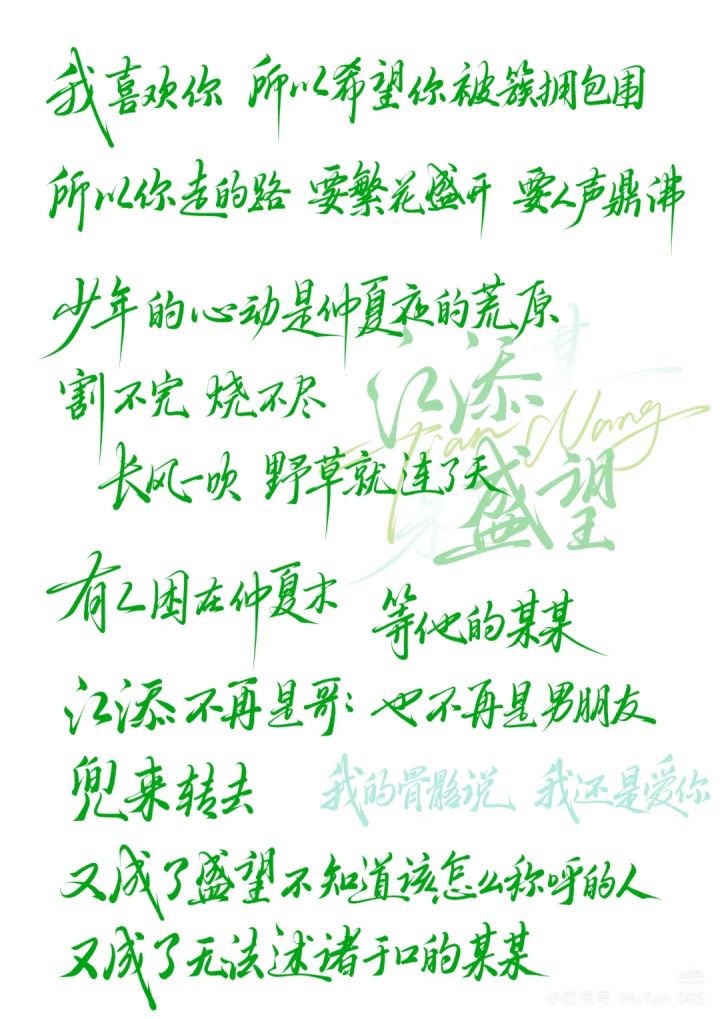 我喜欢你 所以希望你被簇拥包围
所以你走的路 要繁花盛开 要人声鼎沸
少年的心动是仲夏夜的荒原
江添
割不完 烧不尽
Tian Wang
长风一吹 野草就连了天
盛望
有人困在仲夏末 等他的某某
江添不再是哥 也不再是男朋友
兜来转去 我的骨骼说 我还是爱你
又成了盛望不知道该怎么称呼的人
又成了无法述诸于口的某某
小红书号: WuYun_905